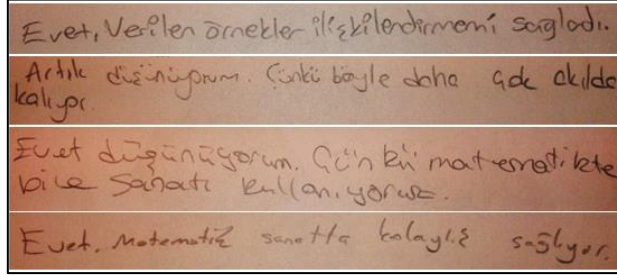 Evet, Verilen örnekler ilişkilendirmemi sağladı.
Artık düşünüyorum. Çünkü böyle daha çok akılda
kalıyor.
Evet düşünüyorum. Çünkü matematikte
bile sanatı kullanıyoruz.
Evet. Matematik sanatta kolaylık sağlıyor.